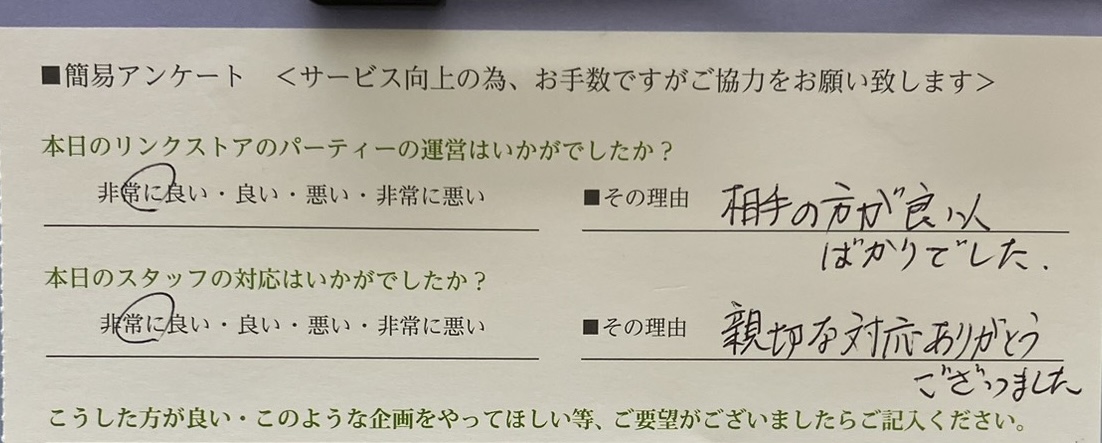 ■簡易アンケート <サービス向上の為、お手数ですがご協力をお願い致します>
本日のリンクストアのパーティーの運営はいかがでしたか?
非常に良い・良い・悪い・非常に悪い ■その理由 相手の方が良い人
ばかりでした.
本日のスタッフの対応はいかがでしたか?
非常に良い・良い・悪い・非常に悪い ■その理由 親切な対応ありがとう
ございました
こうした方が良い・このような企画をやってほしい等、ご要望がございましたらご記入ください。